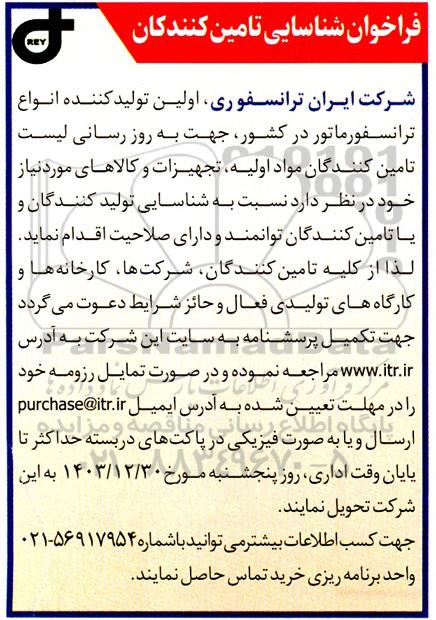 فراخوان شناسایی تامین کنندگان
REY
شرکت ایران ترانسفو ری، اولین تولیدکننده انواع
ترانسفورماتور در کشور، جهت به روز رسانی لیست
تامین کنندگان مواد اولیه، تجهیزات و کالاهای موردنیاز
خود در نظر دارد نسبت به شناسایی تولید کنندگان و
یا تامین کنندگان توانمند و دارای صلاحیت اقدام نماید.
لذا از کلیه تامین کنندگان، شرکت‌ها، کارخانه‌ها و
کارگاه های تولیدی فعال و حائز شرایط دعوت می گردد
جهت تکمیل پرسشنامه به سایت این شرکت به آدرس
www.itr.ir مراجعه نموده و در صورت تمایل رزومه خود
را در مهلت تعیین شده به آدرس ایمیل purchase@itr.ir
ارسال و یا به صورت فیزیکی در پاکت‌های دربسته حداکثر تا
پایان وقت اداری، روز پنجشنبه مورخ ۱۴۰۳/۱۲/۳۰ به این
شرکت تحویل نمایند.
جهت کسب اطلاعات بیشتر می توانید با شماره ۵۶۹۱۷۹۵۴-۰۲۱
واحد برنامه ریزی خرید تماس حاصل نمایند.
ParsNamadData
پایگاه اطلاع رسانی مناقصه و مزایده